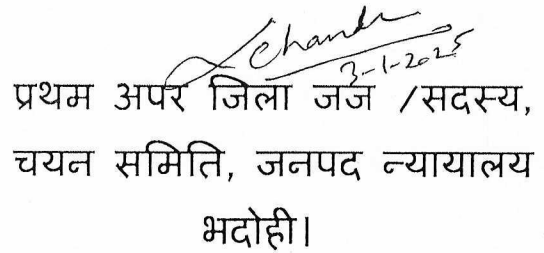 3-1-2025
प्रथम अपर जिला जज /सदस्य,
चयन समिति, जनपद न्यायालय
भदोही।